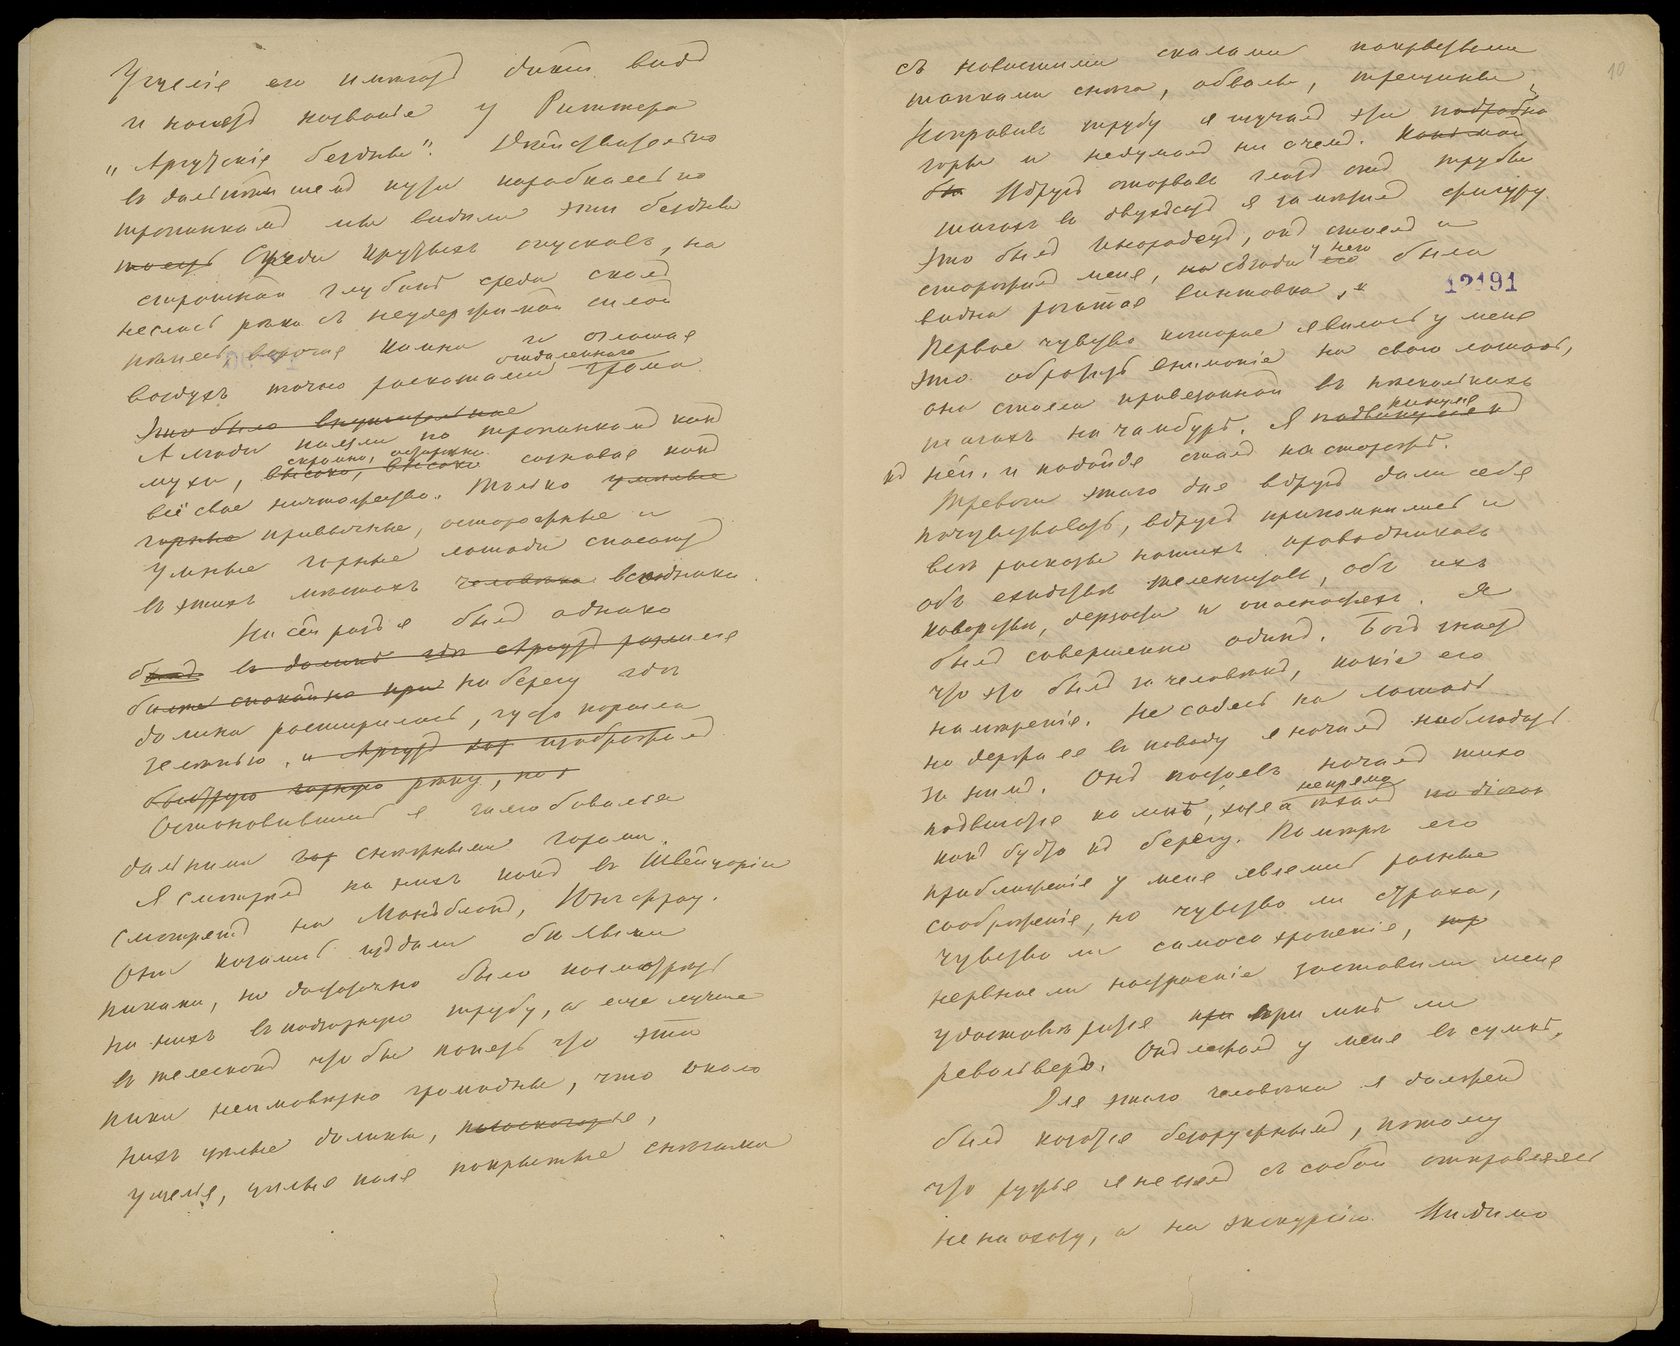 Ущеліе его имѣетъ дикій видъ
и носитъ названіе у Риттера
„Аргутскіе бездны". Дѣйствительно
въ дальнѣйшемъ пути карабкаясь по
тропинкамъ мы видѣли эти бездны
то есть Среди крутыхъ спусковъ, на
страшной глубинѣ среди скалъ
неслась рѣка съ неудержимой силой
пѣнясь, ворочая камни и оглашая
воздухъ точно раскатами отдаленнаго грома.
Это было внушительное
А люди ползли по тропинкамъ какъ
мухи, высоко, высоко скромно, осторожно сознавая какъ
всё свое ничтожество. Только умные
горные привычные, осторожные и
умные горныя лошади спасаютъ
въ этихъ мѣстахъ человѣка всадника.
На сей разъ я былъ однако
былъ въ долинѣ гдѣ Аргутъ разлился
болѣе спокойно при на берегу гдѣ
долина расширилась, густо поросла
зеленью, и Аргутъ изображалъ
быструю горную рѣку, но я
Остановившись я залюбовался
дальними гор снѣжными горами.
Я смотрѣлъ на нихъ какъ въ Швейцаріи
смотрятъ на Монъбланъ, Юнгфрау.
Они казались издали бѣлыми
пиками, но достаточно было посмотрѣть
на нихъ въ подзорную трубу, а еще лучше
въ телескопъ чтобы понять что эти
пики неимовѣрно громадны, что около
нихъ цѣлые долины, плоскогорье,
ущелья, цѣлые поля покрытые снѣгами
10
съ нависшими скалами покрытыми
шапками снѣга, обвалы, трещины
Направивъ трубу я изучалъ эти подробно
горы и не думалъ ни о чемъ. Какъ мой
бы Вдругъ оторвавъ глазъ отъ трубы
шагахъ въ двухстахъ я замѣтилъ фигуру.
Это былъ инородецъ, онъ стоялъ и
сторожилъ меня, на сзади его у него была
видна рогатая винтовка, и
12191
Первое чувство которое явилось у меня
это обратить вниманіе на свою лошадь,
она стояла привязанной въ нѣсколькихъ
шагахъ на чамбурѣ. Я подвинулся кинулся
къ ней, и подойдя сталъ на сторожѣ.
Тревоги этого дня вдругъ дали себя
почувствовать, вдругъ припомнились и
всѣ разсказы нашихъ проводниковъ
объ ехидствѣ телеингитовъ, объ ихъ
коварствѣ, дерзости и опасностяхъ. Я
былъ совершенно одинъ. Богъ знаетъ
что это былъ за человѣкъ, какіе его
намѣренія. Не садясь на лошадь
но держа ее въ поводу я началъ наблюдать
за нимъ. Онъ постоявъ, началъ тихо
подвигаться ко мнѣ, хотя а не прямо
какъ будто къ берегу. По мѣрѣ его
приближенія у меня явились разныя
соображенія, но чувство ли страха,
чувство ли самосохраненія, тр
нервное ли настроеніе заставили меня
удостовѣриться при при мнѣ ли
револьверъ. Онъ лежалъ у меня въ сумкѣ.
Для этого человѣка я долженъ
былъ казаться безоружнымъ, потому
что ружья я не взялъ съ собой отправляясь
не на охоту, а на экскурсію. Видимо